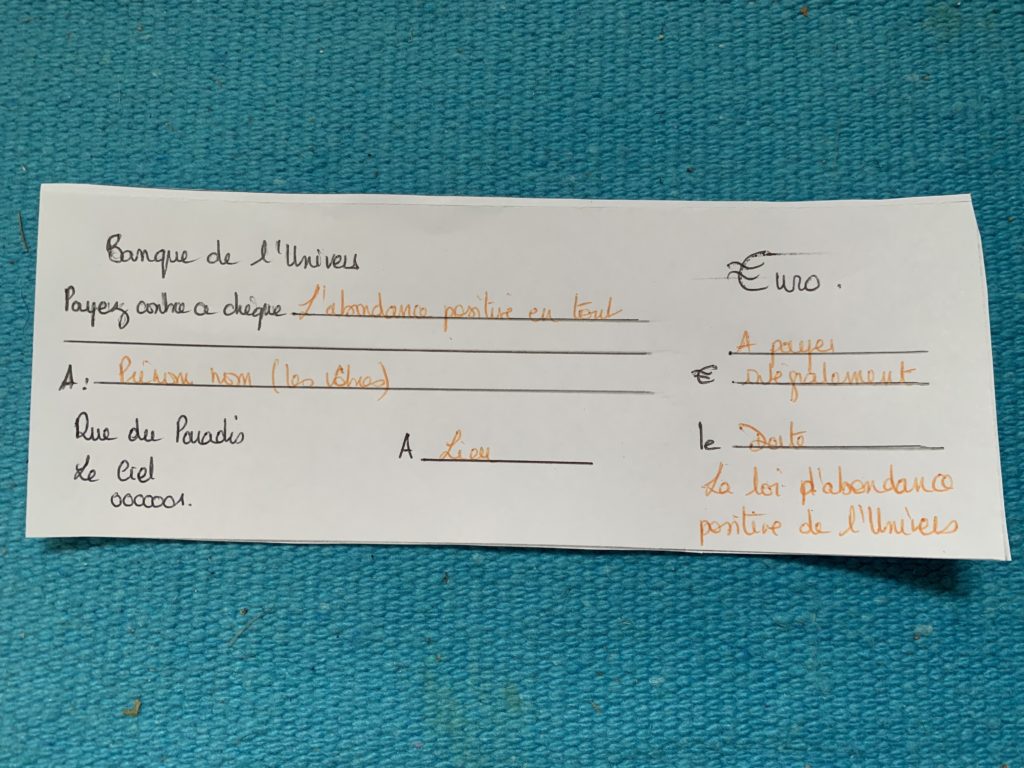 Banque de l'Univers
Payez contre ce chèque L'abondance positive en tout
A: Prénom nom (les vôtres)
Rue du Paradis
Le Ciel
0000001.
A Lieu
Euro.
A payer
€ intégralement
le Date
La loi d'abondance
positive de l'Univers